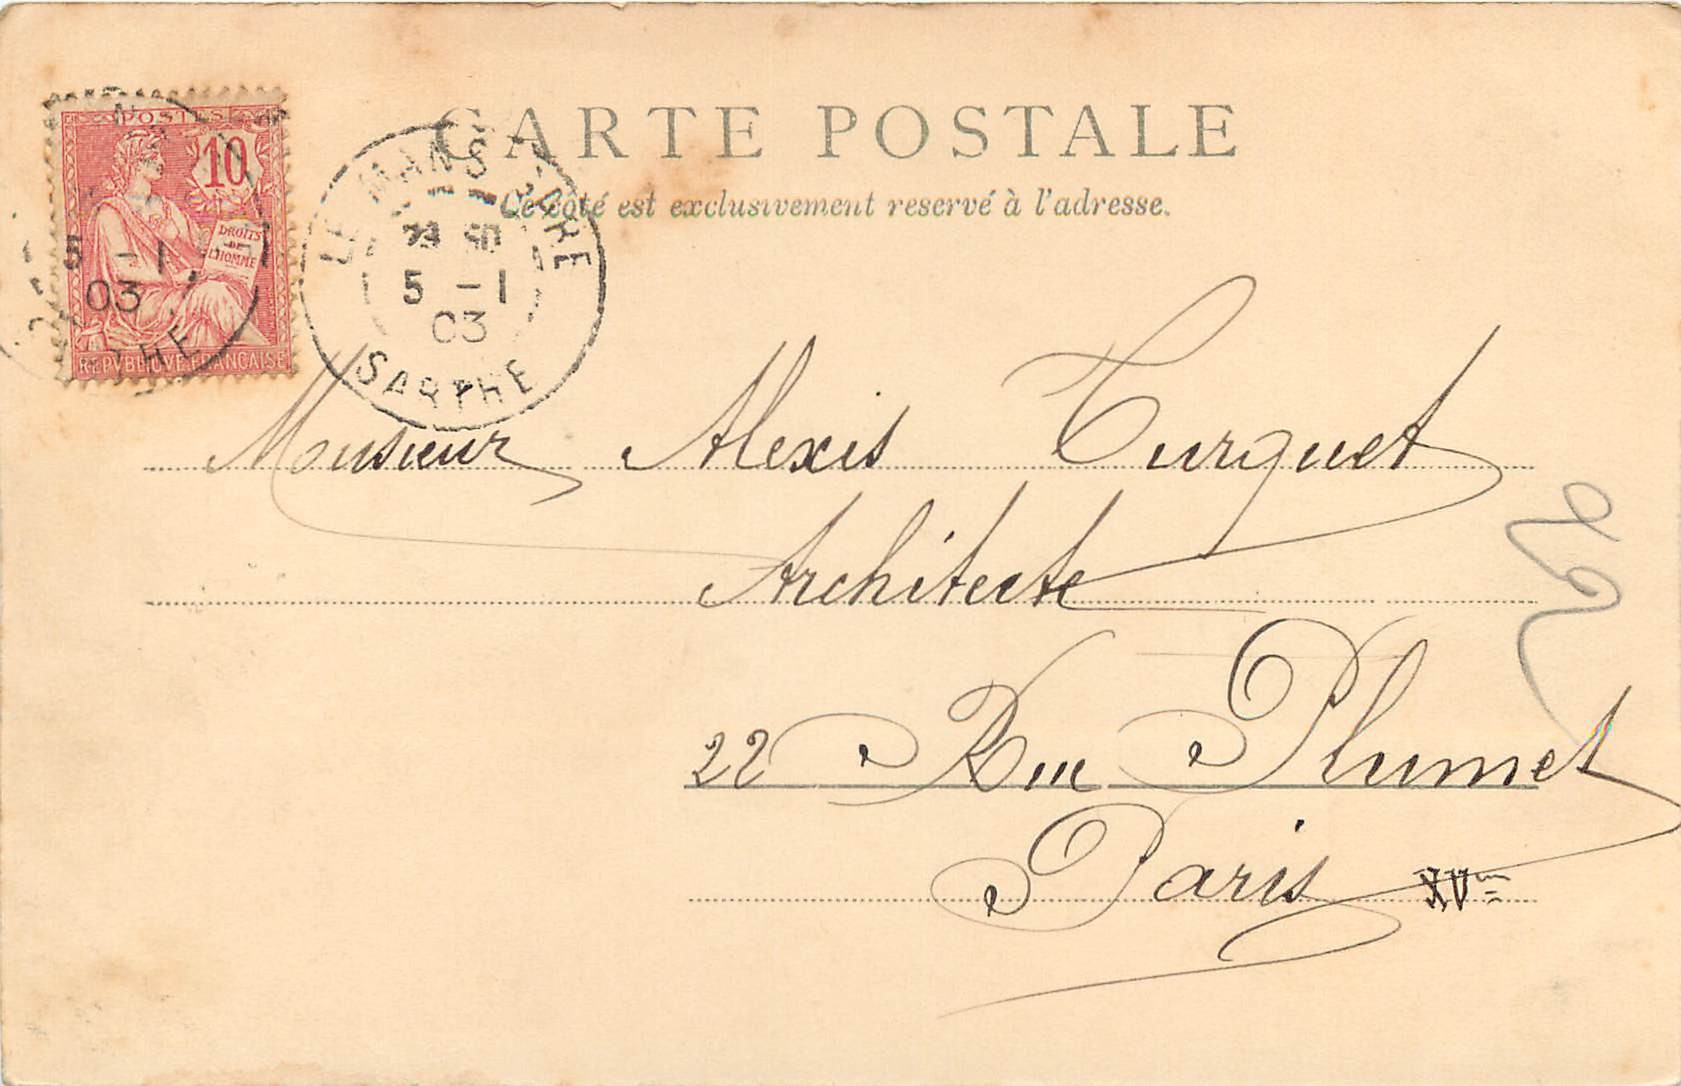 CARTE POSTALE
Ce côté est exclusivement reservé à l'adresse.
POSTES
10
DROITS
DE
L'HOMME
REPVBLIQVE FRANÇAISE
5 -1
03
LE MANS GARE
5 -1
03
SARTHE
Monsieur Alexis Turquet
Architecte
22 Rue Plumet
Paris XVme